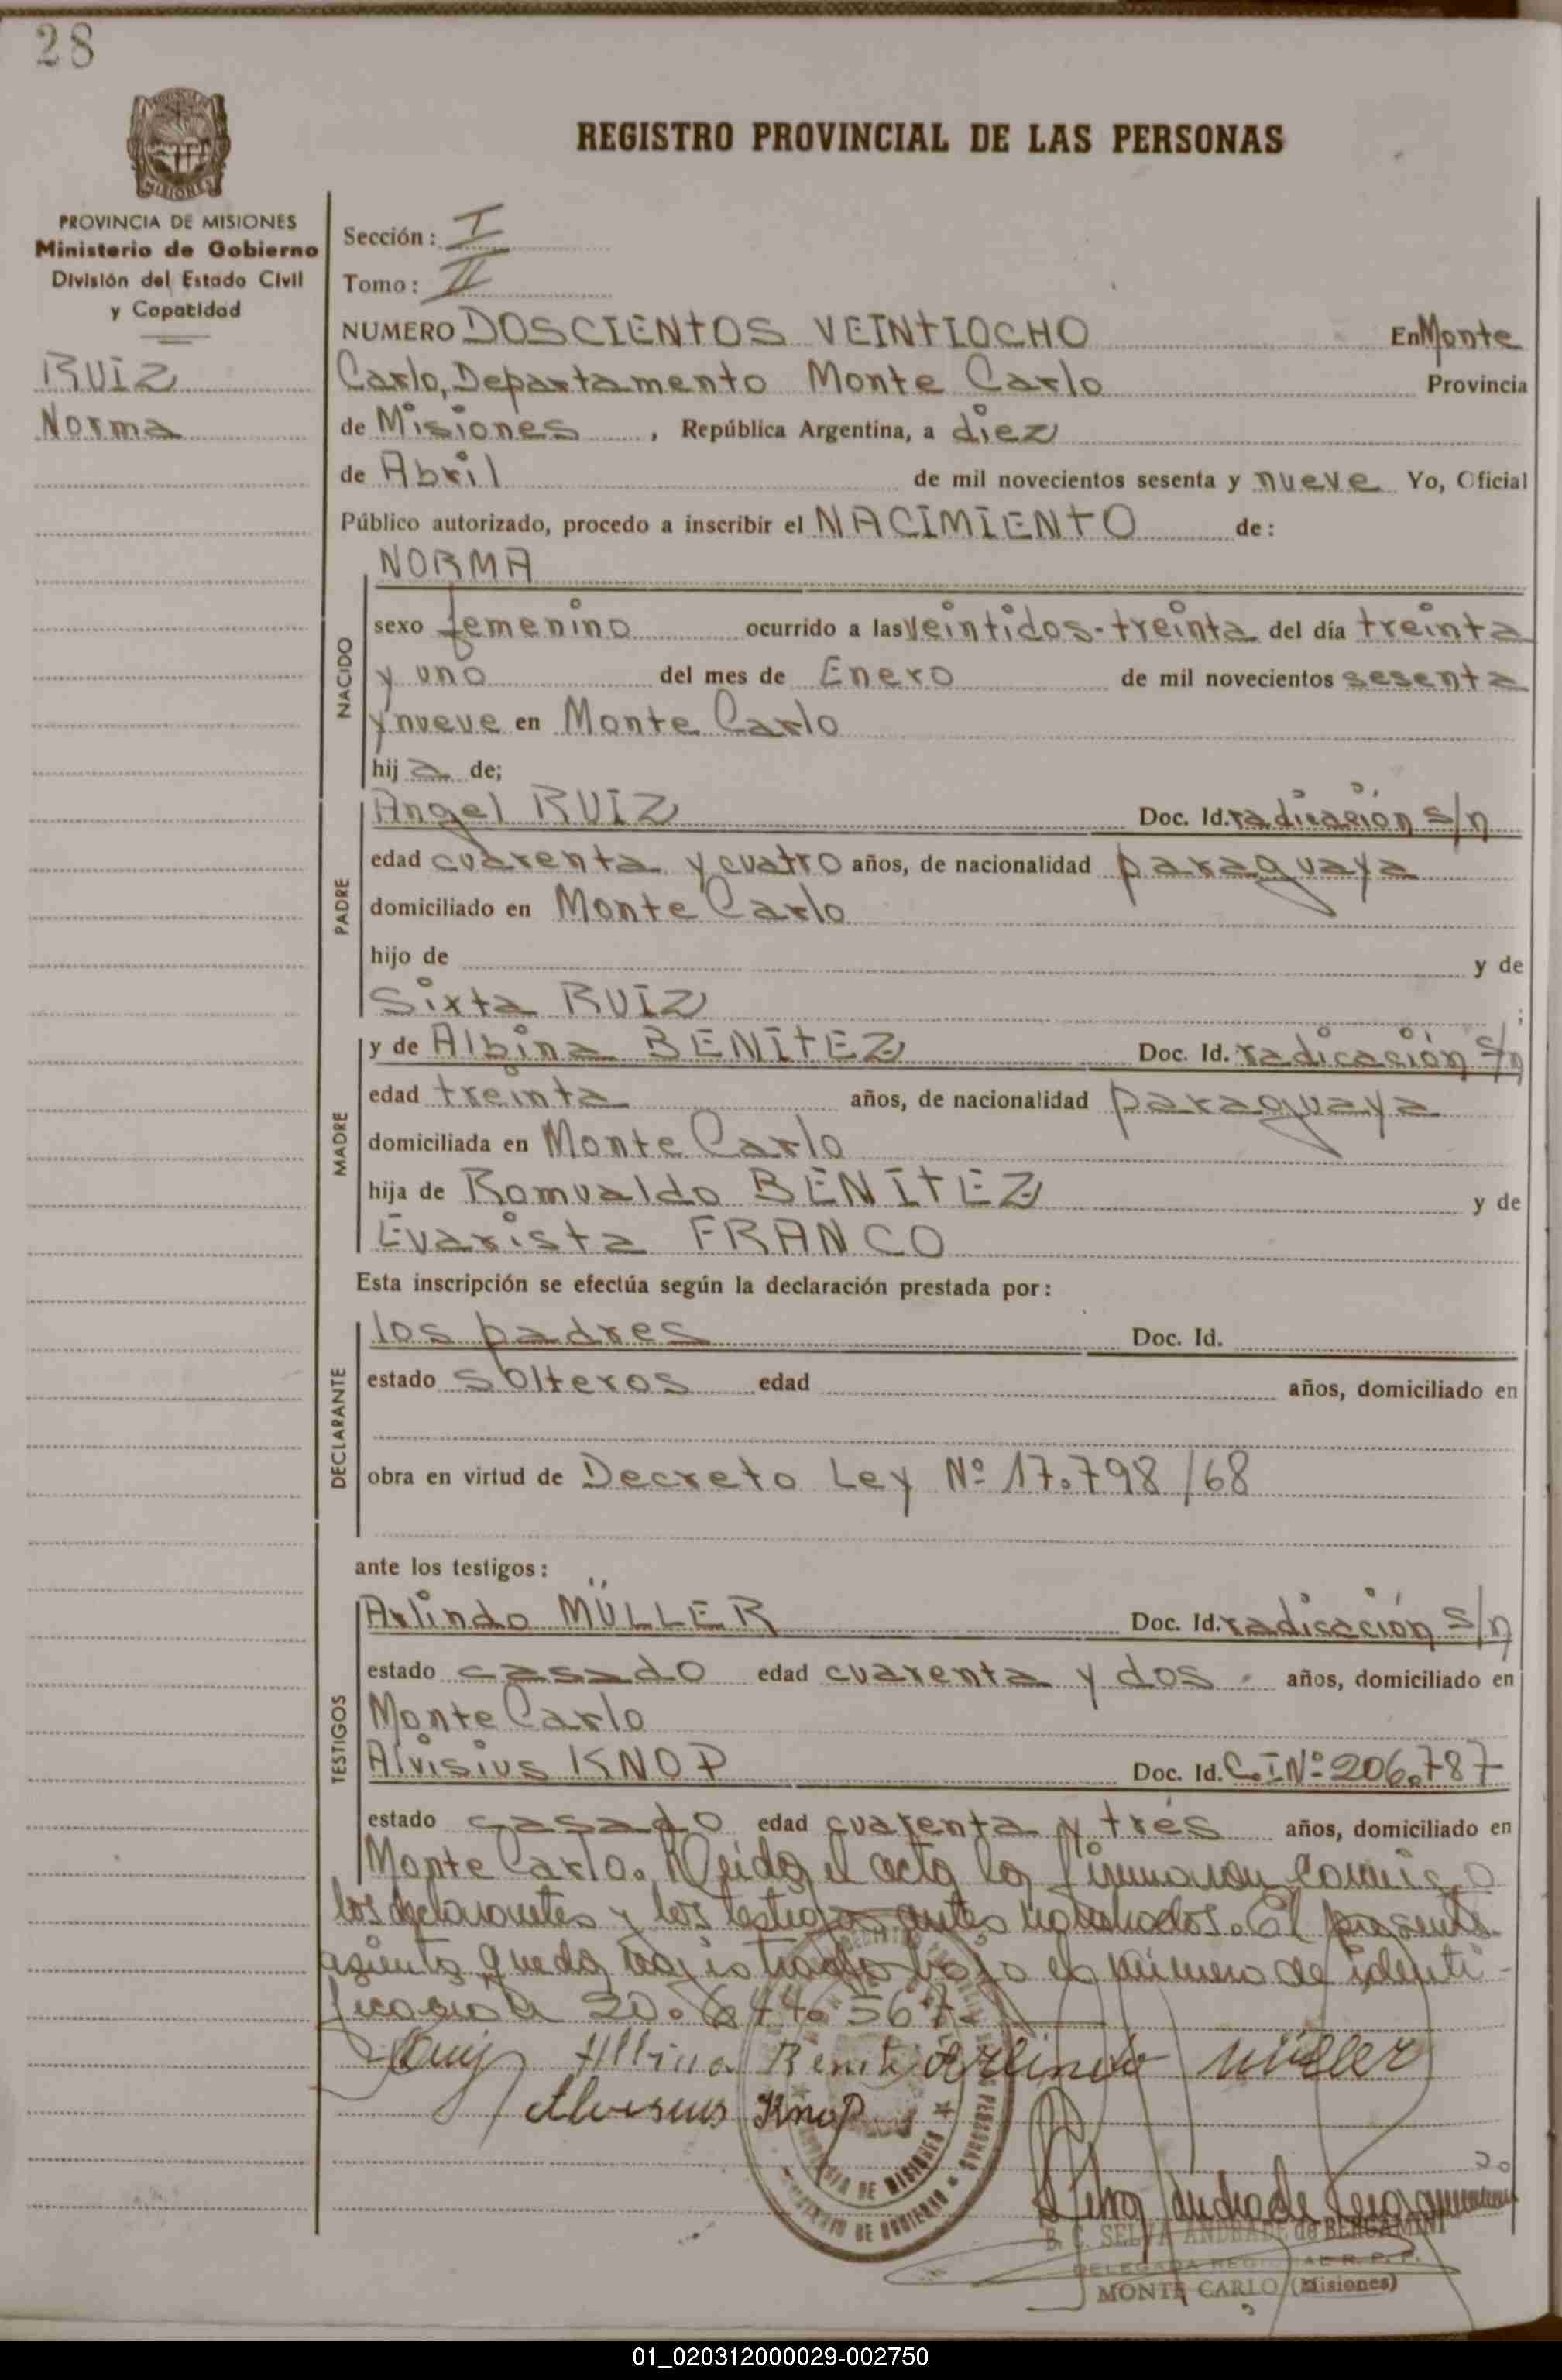 28
REGISTRO PROVINCIAL DE LAS PERSONAS
MISIONES
PROVINCIA DE MISIONES
Ministerio de Gobierno
División del Estado Civil
y Capacidad
RUIZ
Norma
Sección: I
Tomo: II
NUMERO DOSCIENTOS VEINTIOCHO En Monte
Carlo, Departamento Monte Carlo Provincia
de Misiones, República Argentina, a diez
de Abril de mil novecientos sesenta y nueve Yo, Oficial
Público autorizado, procedo a inscribir el NACIMIENTO de:
NACIDO
NORMA
sexo femenino ocurrido a las veintidos-treinta del día treinta
y uno del mes de Enero de mil novecientos sesenta
y nueve en Monte Carlo
hija de;
PADRE
Angel RUIZ Doc. Id. radicación s/n
edad cuarenta y cuatro años, de nacionalidad paraguaya
domiciliado en Monte Carlo
hijo de y de
Sixta RUIZ ;
MADRE
y de Albina BENITEZ Doc. Id. radicación s/n
edad treinta años, de nacionalidad paraguaya
domiciliada en Monte Carlo
hija de Romualdo BENITEZ y de
Evarista FRANCO
Esta inscripción se efectúa según la declaración prestada por:
DECLARANTE
los padres Doc. Id.
estado solteros edad años, domiciliado en
obra en virtud de Decreto Ley Nº 17.798/68
ante los testigos:
TESTIGOS
Arlindo MÜLLER Doc. Id. radicación s/n
estado casado edad cuarenta y dos años, domiciliado en
Monte Carlo
Alvisius KNOP Doc. Id. C.I Nº 206.787
estado casado edad cuarenta y tres años, domiciliado en
Monte Carlo. Leida el acta la firmaron conmigo
los declarantes y los testigos antes nombrados. El presente
asiento queda registrado bajo el número de identi-
ficación 20.644.567.
Albina Benite Arlindo Müller
Alvisius Knop
PROVINCIA DE MISIONES
MINISTERIO DE GOBIERNO
B. C. SELVA ANDRADE de BERGAMINI
DELEGADA REGIONAL R. P. P.
MONTE CARLO (Misiones)
01_020312000029-002750